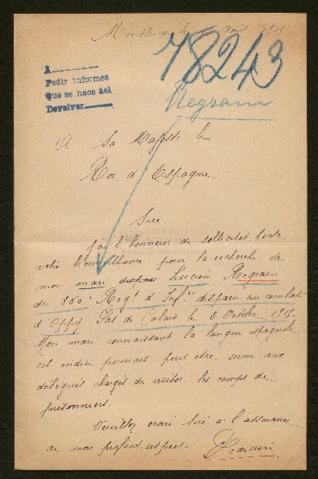 78243
Regrain
A
Pedir informes
que se hace así
Devolver
A Sa Majesté le
Roi d'Espagne
Sire
J'ai l'honneur de solliciter toute
votre bienveillance pour la recherche de
mon mari disparu Lucien Regrain
du 360e Régt d'Infie disparu au combat
d'Oppy Pas de Calais le 2 Octobre 191
Mon mari connaissant la langue espagnole
cet indice pourrait peut être servir aux
délégués chargés de visiter les camps de
prisonniers.
Veuillez croire Sire à l'assurance
de mon profond respect.